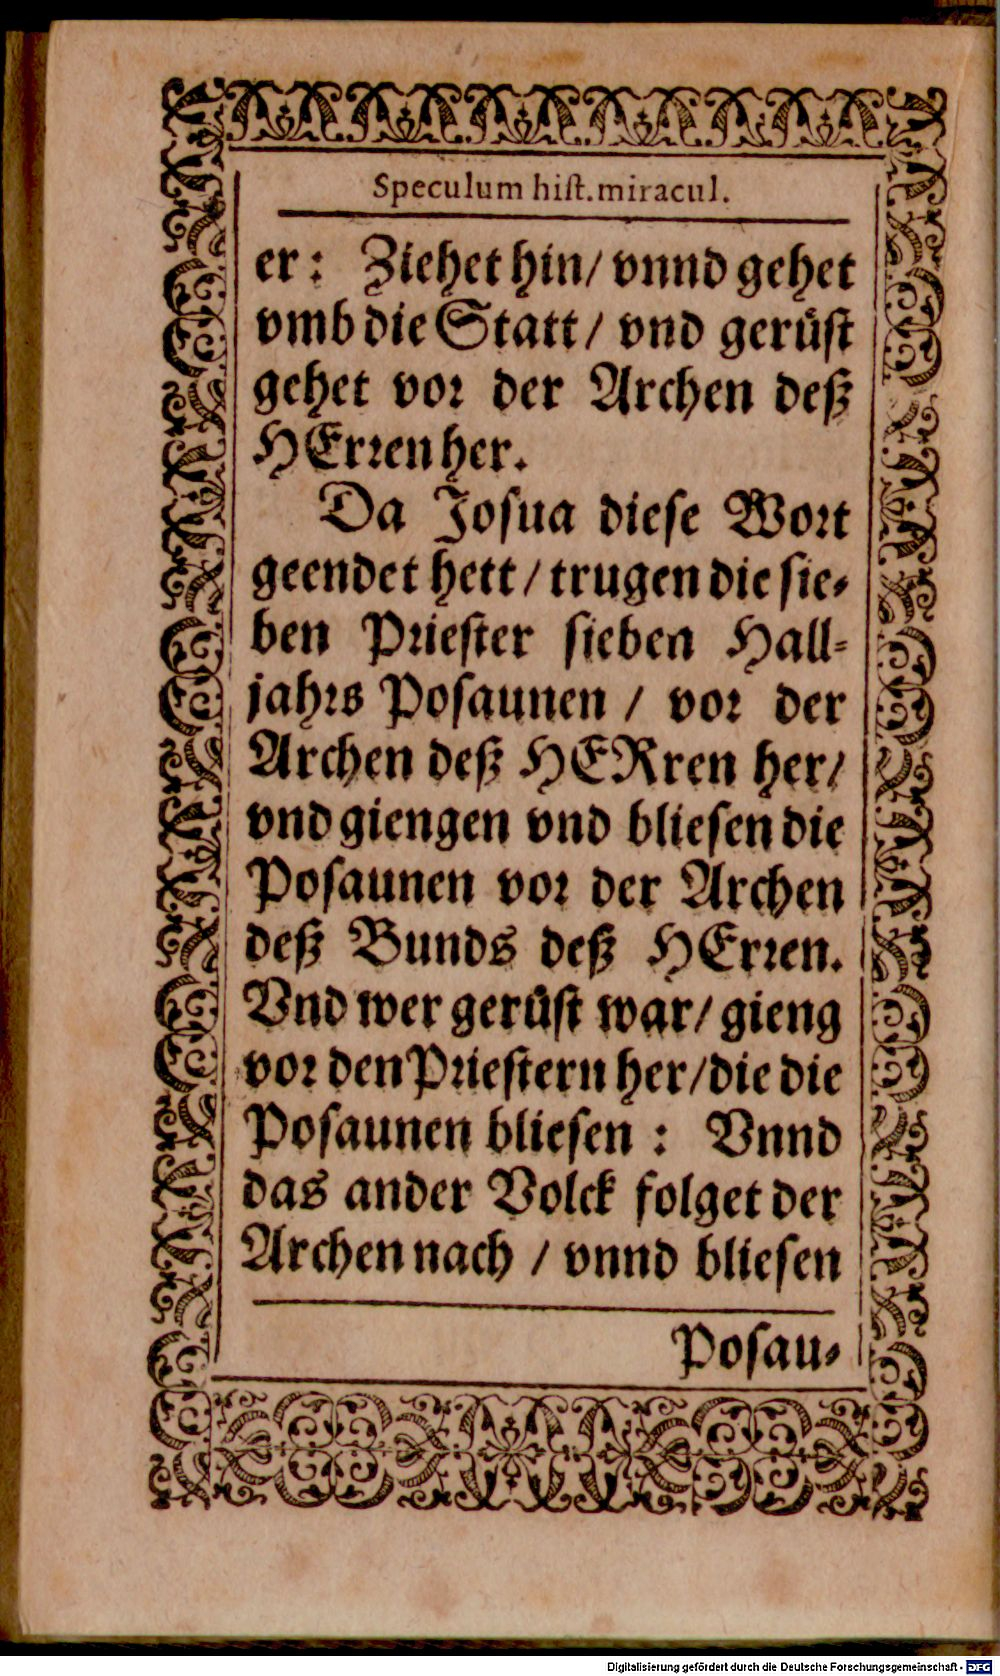 Speculum hiſt. miracul.
er: Ziehet hin/ vnnd gehet
vmb die Statt/ vnd gerüſt
gehet vor der Archen deß
HErꝛen her.
Da Joſua dieſe Woꝛt
geendet hett/ trugen die ſie-
ben Pꝛieſter ſieben Hall-
jahꝛs Poſaunen / voꝛ der
Archen deß HERren her/
vnd giengen vnd blieſen die
Poſaunen voꝛ der Archen
deß Bunds deß HErꝛen.
Vnd wer gerüſt war/ gieng
voꝛ den Pꝛieſtern her/ die die
Poſaunen blieſen : Vnnd
das ander Volck folget der
Archen nach / vnnd blieſen
Poſau-
Digitalisierung gefördert durch die Deutsche Forschungsgemeinschaft - DFG